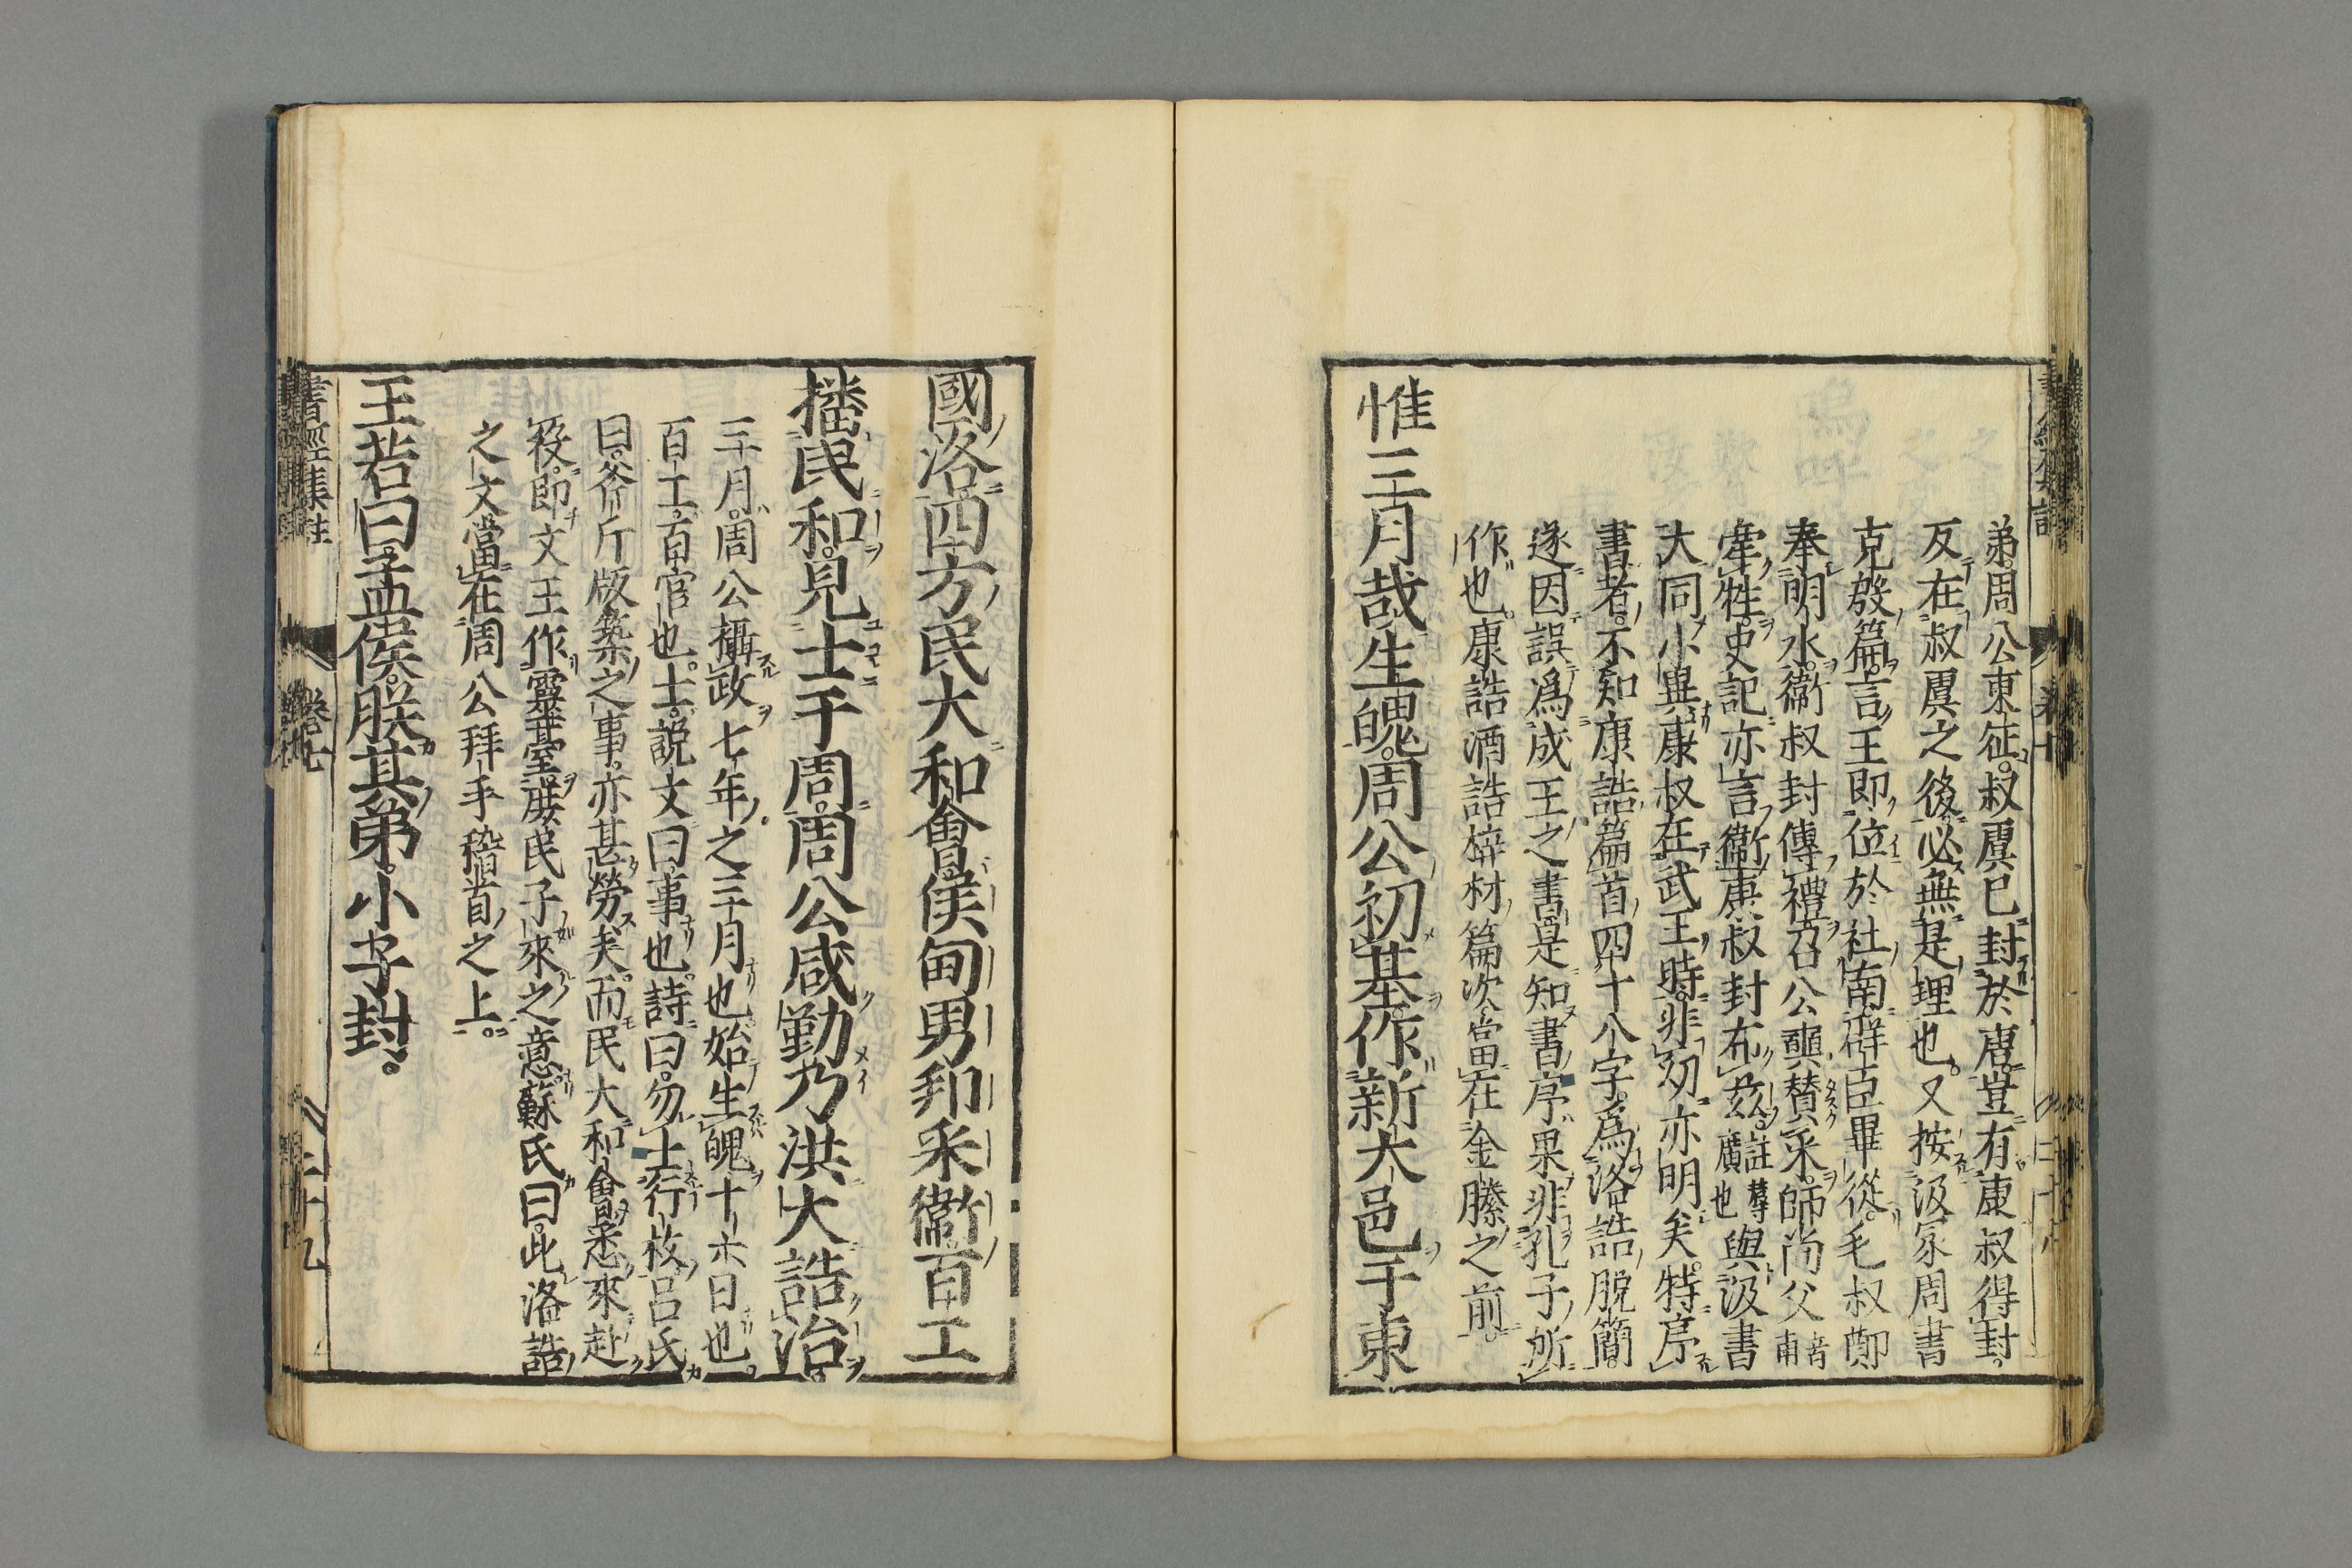 弟。周公東征。叔虞已封於唐。豈有康叔得封。
反在叔虞之後。必無是理也。又按汲冢周書
克殷篇。言王即位於社南。群臣畢從。毛叔鄭
奉明水。衞叔封傳禮。召公奭賛采。師尚父音甫
牽牲。史記亦言衞康叔封布茲。註蓐廣也與汲書
大同小異。康叔在武王時。非幼亦明矣。特序
書者。不知康誥篇首四十八字。爲洛誥脱簡。
遂因誤爲成王之書。是知書序果非孔子所
作也。康誥酒誥梓材篇次當在金縢之前。
惟三月哉生魄。周公初基。作新大邑于東
國洛。四方民大和會。侯甸男邦采衞百工
播民和。見士于周。周公咸勤。乃洪大誥治。
三月。周公攝政七年之三月也。始生魄。十六日也。
百工。百官也。士。説文曰事也。詩曰。勿士行枚。呂氏
曰。斧斤版築之事。亦甚勞矣。而民大和會。悉來赴
役。即文王作靈臺。庶民子來之意。蘇氏曰。此洛誥
之文。當在周公拜手稽首之上。
王若曰。孟侯。朕其弟。小子封。
書經集註 卷七 二十九